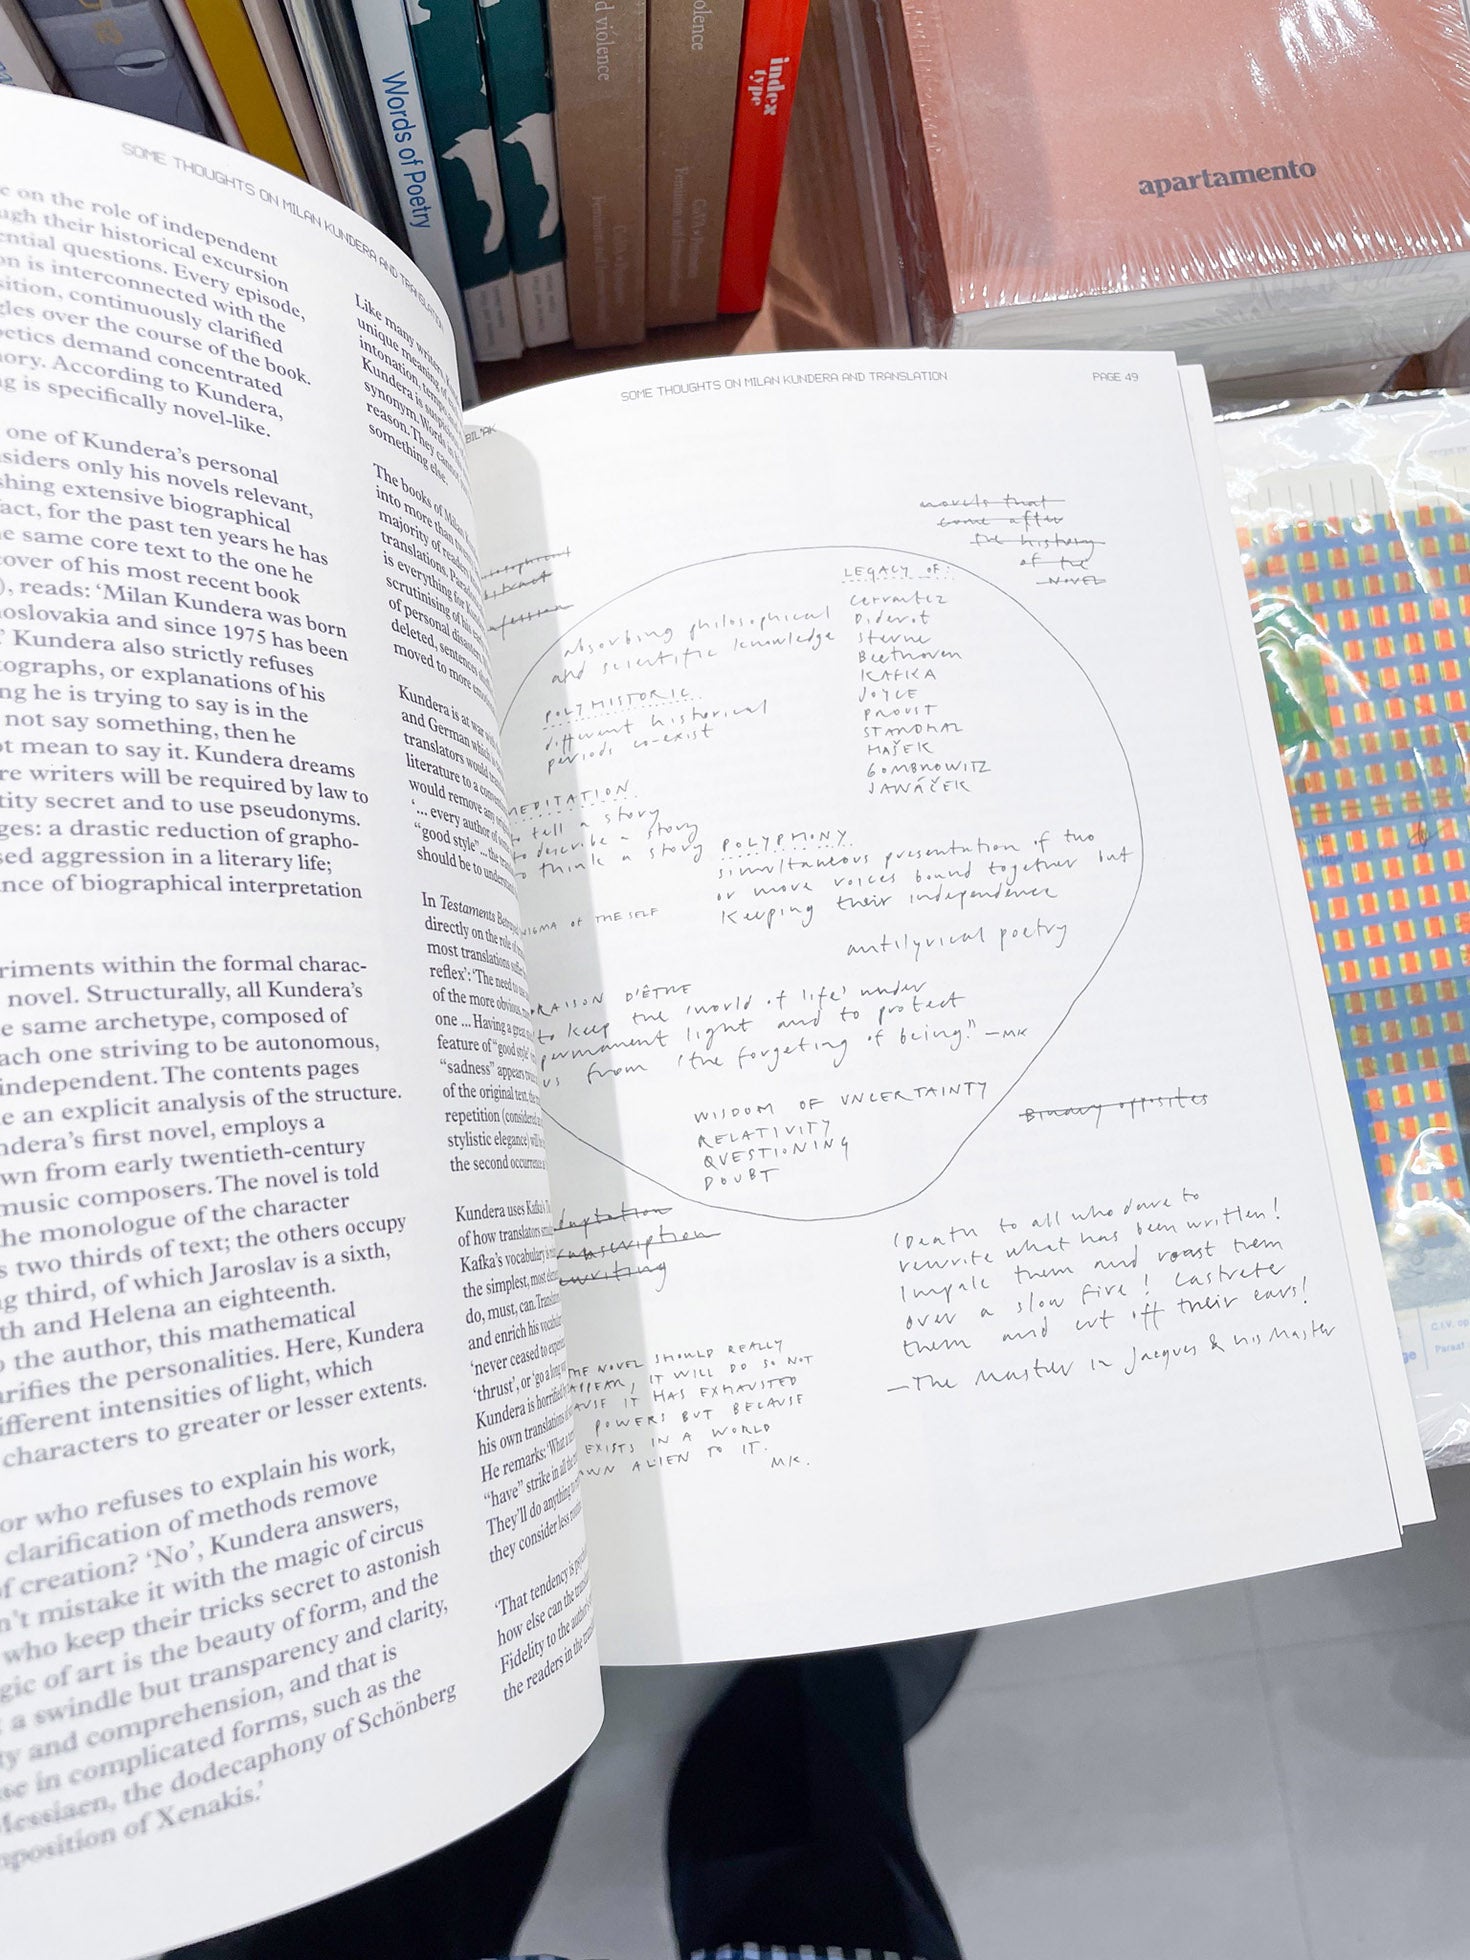 Words of Poetry
d violence
olence
index
type
apartamento
SOME THOUGHTS ON MILAN KUNDERA AND TRANSLATION
c on the role of independent
ugh their historical excursion
ential questions. Every episode,
on is interconnected with the
sition, continuously clarified
gles over the course of the book.
oetics demand concentrated
nory. According to Kundera,
ng is specifically novel-like.
one of Kundera's personal
nsiders only his novels relevant,
shing extensive biographical
fact, for the past ten years he has
he same core text to the one he
cover of his most recent book
), reads: 'Milan Kundera was born
hoslovakia and since 1975 has been
.' Kundera also strictly refuses
tographs, or explanations of his
ng he is trying to say is in the
not say something, then he
ot mean to say it. Kundera dreams
re writers will be required by law to
tity secret and to use pseudonyms.
ges: a drastic reduction of grapho-
sed aggression in a literary life;
nce of biographical interpretation
riments within the formal charac-
novel. Structurally, all Kundera's
e same archetype, composed of
each one striving to be autonomous,
independent. The contents pages
e an explicit analysis of the structure.
ndera's first novel, employs a
wn from early twentieth-century
music composers. The novel is told
he monologue of the character
s two thirds of text; the others occupy
g third, of which Jaroslav is a sixth,
th and Helena an eighteenth.
o the author, this mathematical
arifies the personalities. Here, Kundera
ifferent intensities of light, which
characters to greater or lesser extents.
or who refuses to explain his work,
clarification of methods remove
of creation? 'No', Kundera answers,
n't mistake it with the magic of circus
who keep their tricks secret to astonish
gic of art is the beauty of form, and the
t a swindle but transparency and clarity,
ty and comprehension, and that is
se in complicated forms, such as the
Messiaen, the dodecaphony of Schönberg
position of Xenakis.'
Like many writers,
unique meaning of
intonation, tempo
Kundera is
synonym. Words
reason. They
something else.
The books of Milan
into more than
majority of readers
translations.
is everything for
scrutinising of
of personal
deleted, sentences
moved to more
Kundera is at war
and German which
translators would
literature to a
would remove any
'... every author of
"good style"... the
should be to
In Testaments
directly on the role of
most translations
reflex': 'The need to
of the more obvious,
one ... Having a
feature of "good style"
"sadness" appears
of the original text, the
repetition (considered
stylistic elegance)
the second occurrence
Kundera uses Kafka's
of how translators
Kafka's vocabulary is
the simplest, most
do, must, can.
and enrich his
'never ceased to
'thrust', or 'go a long
Kundera is horrified
his own translations
He remarks: 'What
"have" strike in all the
They'll do anything to
they consider less
'That tendency is
how else can the
Fidelity to the
the readers in the
SOME THOUGHTS ON MILAN KUNDERA AND TRANSLATION
PAGE 49
BIL'AK
novels that
come after
the history
of the
NOVEL
absorbing philosophical
and scientific knowledge
POLYHISTORIC
different historical
periods co-exist
MEDITATION
tell a story
to describe a story
think a story
OF THE SELF
LEGACY OF:
Cervantez
Diderot
Sterne
Beethoven
KAFKA
JOYCE
PROUST
STANDHAL
HAŠEK
GOMBROWITZ
JANÁČEK
POLYPHONY
simultaneous presentation of two
or more voices bound together but
keeping their independence
antilyrical poetry
RAISON D'ÊTRE
to keep 'the world of life' under
permanent light and to protect
us from 'the forgeting of being." — MK
WISDOM OF UNCERTAINTY
RELATIVITY
QUESTIONING
DOUBT
Binary opposites
'Death to all who dare to
rewrite what has been written!
Impale them and roast them
over a slow fire! Castrate
them and cut off their ears!
— The Master in Jacques & his Master
THE NOVEL SHOULD REALLY
APPEAR, IT WILL DO SO NOT
AUSE IT HAS EXHAUSTED
POWERS BUT BECAUSE
EXISTS IN A WORLD
WN ALIEN TO IT.
MK.